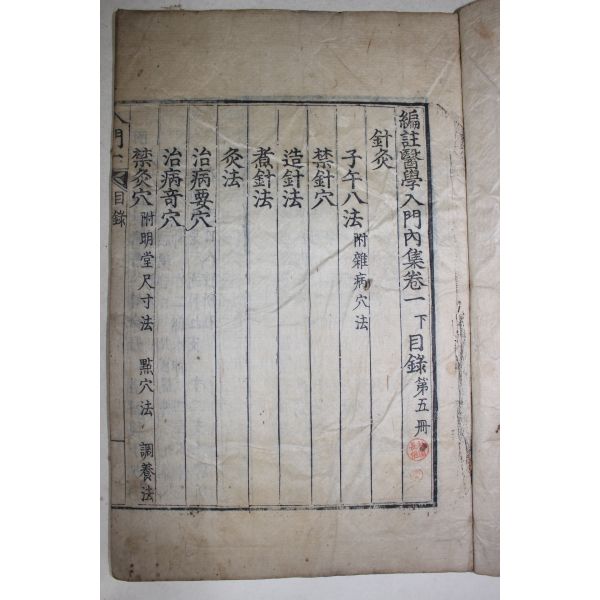 編註醫學入門內集卷一 下 目錄 第五冊
針灸
子午八法 附雜病穴法
禁針穴
造針法
煮針法
灸法
治病要穴
治病奇穴
禁灸穴 附明堂尺寸法 點穴法 調養法
入門一 目錄